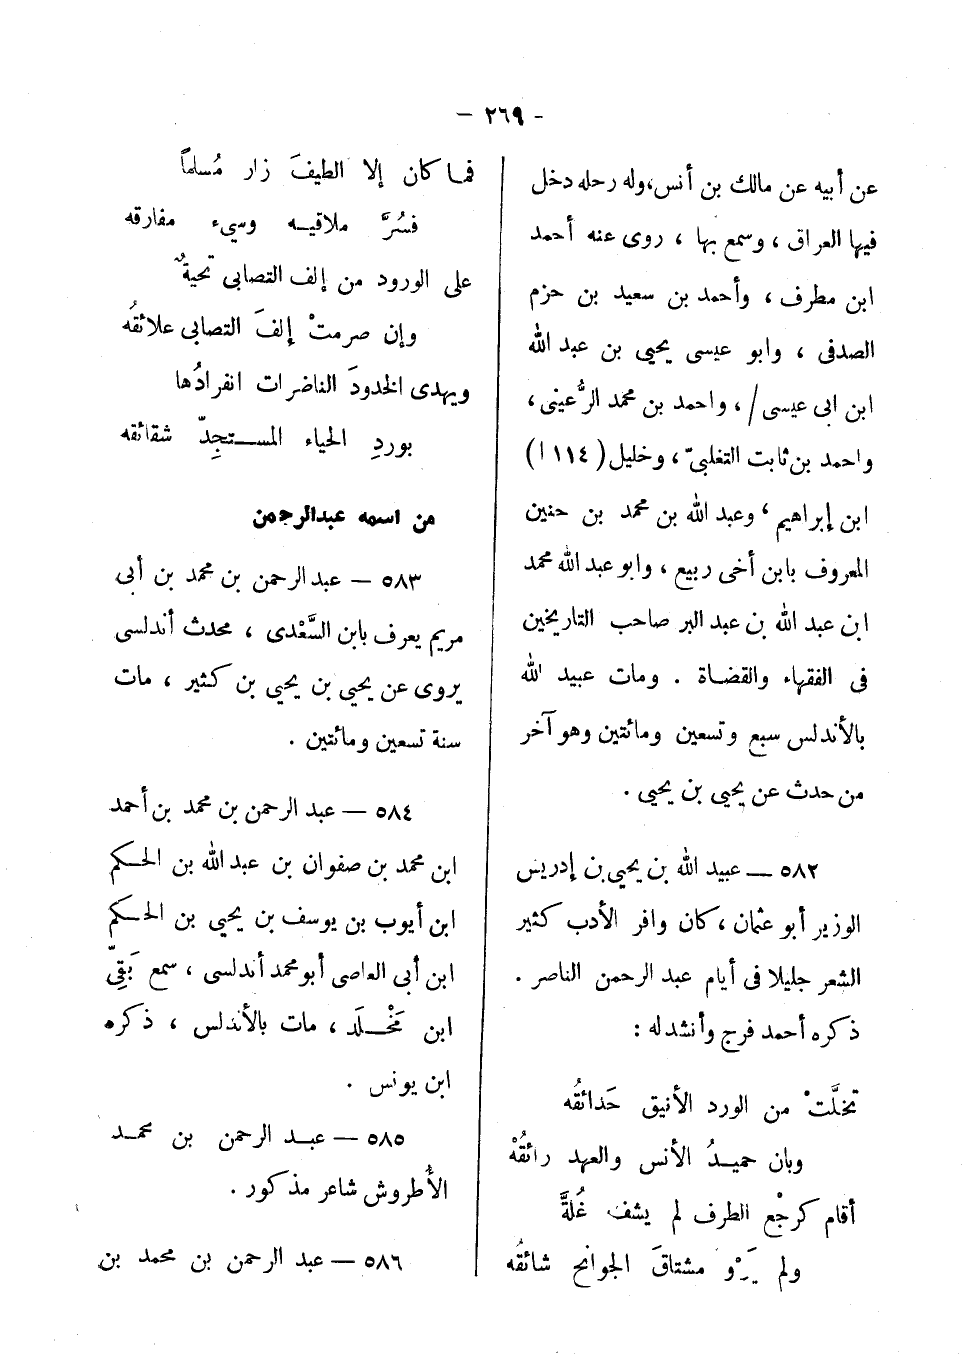 - ٢٦٩ -
عن أبيه عن مالك بن أنس، وله رحله دخل
فيها العراق ، وسمع بها ، روى عنه أحمد
ابن مطرف ، وأحمد بن سعيد بن حزم
الصدفى ، وابو عيسى يحيى بن عبد الله
ابن ابى عيسى/ ، واحمد بن محمد الرُّعينى ،
واحمد بن ثابت التغلبىّ ، وخليل (١١٤ ا)
ابن إبراهيم ، وعبد الله بن محمد بن حنين
المعروف بابن أخى ربيع ، وابو عبد الله محمد
ابن عبد الله بن عبد البر صاحب التاريخين
فى الفقهاء والقضاة . ومات عبيد الله
بالأندلس سبع وتسعين ومائتين وهو آخر
من حدث عن يحيى بن يحيى .
٥٨٢ — عبيد الله بن يحيى بن إدريس
الوزير أبو عثمان ، كان وافر الأدب كثير
الشعر جليلا فى أيام عبد الرحمن الناصر .
ذكره أحمد فرج وأنشد له :
تخلَّتْ من الورد الأنيق حَدائقُه
وبان حميدُ الأنس والعهد رائقُهْ
أقام كرجْع الطرف لم يشف غُلةً
ولم يَرْوِ مشتاقَ الجوانح شائقُه
فما كان إلا الطيفَ زار مُسلماً
فسُرَّ ملاقيه وسيء مفارقه
على الورود من إلف التصابى تحيةٌ
وإن صرمتْ إلفَ التصابى علائقُه
ويهدى الخدودَ الناضرات انفرادُها
بوردِ الحياء المستجِدِّ شقائقه
من اسمه عبدالرحمن
٥٨٣ — عبد الرحمن بن محمد بن أبى
مريم يعرف بابن السَّعْدى ، محدث أندلسى
يروى عن يحيى بن يحيى بن كثير ، مات
سنة تسعين ومائتين .
٥٨٤ — عبد الرحمن بن محمد بن أحمد
ابن محمد بن صفوان بن عبد الله بن الحكم
ابن أيوب بن يوسف بن يحيى بن الحكم
ابن أبى العاصى أبو محمد أندلسى ، سمع بَقِىّ
ابن مَخْلَد ، مات بالأندلس ، ذكره
ابن يونس .
٥٨٥ — عبد الرحمن بن محمد
الأُطروش شاعر مذكور .
٥٨٦ — عبد الرحمن بن محمد بن